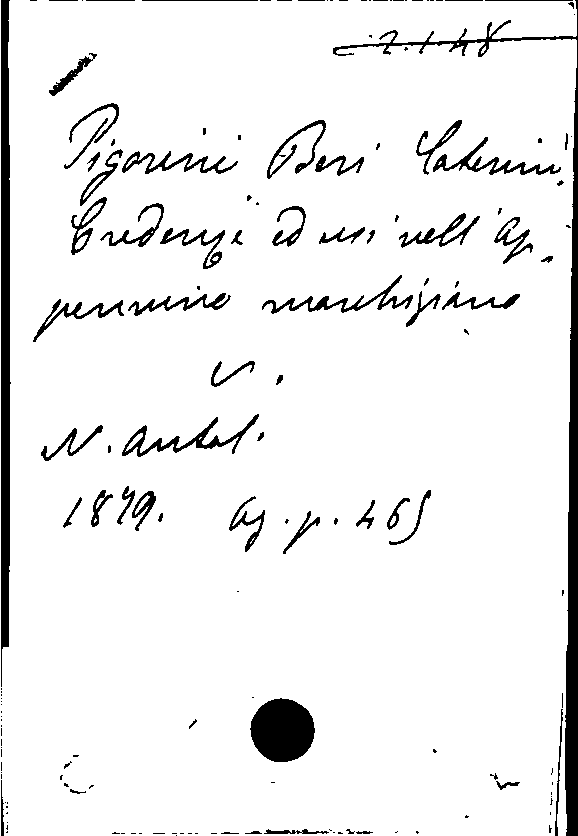 2.1.48
Pigorini Beri Caterina,
Credenze ed usi nell'Ap-
pennino marchigiano
v.
N. Antol.
1879. Ag. p. 465